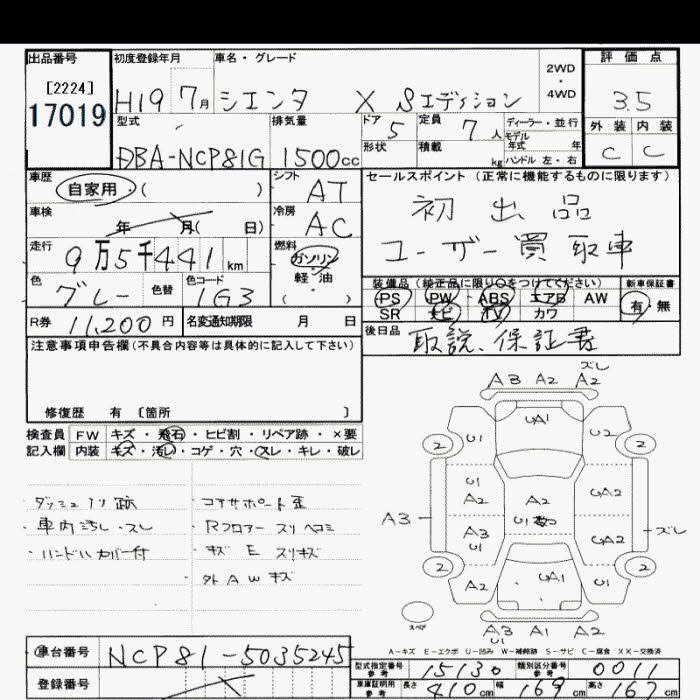 出品番号
[2224]
17019
初度登録年月
H19 7月
車名・グレード
シエンタ X Sエディション
2WD
・
4WD
評価点
3.5
外装 内装
C C
型式
DBA-NCP81G
排気量
1500cc
ドア 5
定員 7人
形状
積載 kg
ディーラー・並行
モデル
年式 年
ハンドル 左・右
車歴
自家用 ( )
シフト
AT
車検
年 月( 日)
冷房
AC
走行
9万5千441km
燃料
ガソリン
軽・油
( )
色
グレー
色替
色コード
1G3
R券 11,200円
名変通知期限 月 日
セールスポイント (正常に機能するものに限ります)
初出品
ユーザー買取車
装備品 (純正品に限り〇をつけてください)
PS PW ABS エアB AW
SR ナビ TV カワ
新車保証書
有・無
後日品
取説、保証書
注意事項申告欄 (不具合内容等は具体的に記入して下さい)
修復歴 有 〔箇所 〕
検査員 FW キズ・飛石・ヒビ割・リペア跡・×要
記入欄 内装 キズ・汚レ・コゲ・穴・スレ・キレ・破レ
・車内汚し・スレ
・ハンドルカバー付
・コアサポート歪
・Rフロアースリヘコミ
・キズEスリキズ
・外AWキズ
ズレ
A3 A2 A2
UA1
U1 U2
2 2
U1
A2
UA2
A2
U1
A3
A3
U1
UA2
ズレ
2 2
A2 UA1 U1
スペア
A3 A1 A2
U1
A-キズ E-エクボ U-凹み W-補修跡 S-サビ C-腐食 XX-交換済
車台番号 NCP81-5035245
登録番号
型式指定番号
参考
15130
類別区分番号
参考
0011
車庫証明用
参考
長さ 410cm 幅 169cm 高さ 167cm